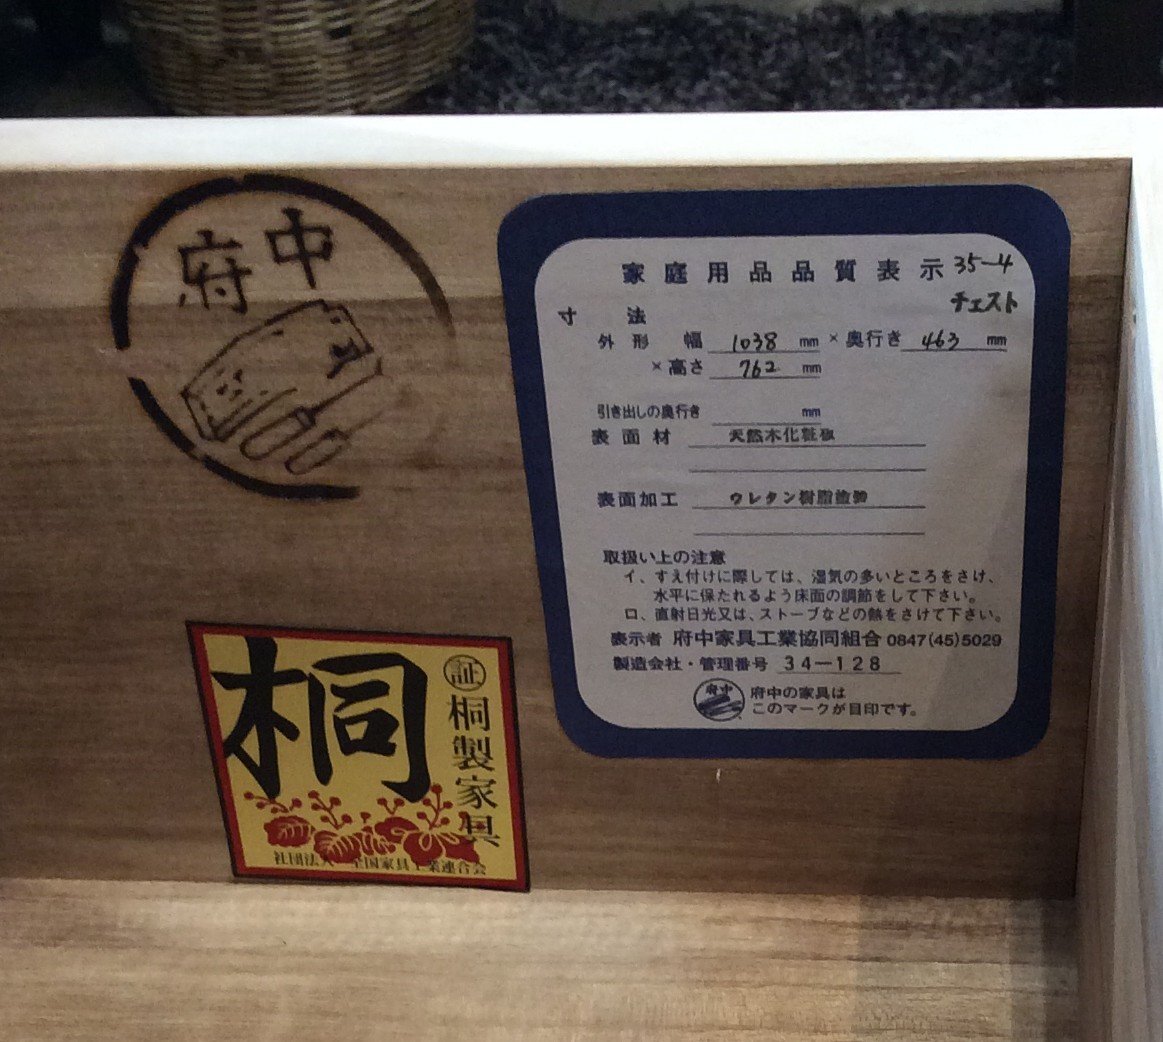 府中
家庭用品品質表示 35-4
チェスト
寸法
外形 幅 1038 mm × 奥行き 463 mm
× 高さ 762 mm
引き出しの奥行き mm
表面材 天然木化粧板
表面加工 ウレタン樹脂塗物
取扱い上の注意
イ、すえ付けに際しては、湿気の多いところをさけ、
水平に保たれるよう床面の調節をして下さい。
ロ、直射日光又は、ストーブなどの熱をさけて下さい。
表示者 府中家具工業協同組合 0847(45)5029
製造会社・管理番号 34-128
府中
府中の家具は
このマークが目印です。
桐
証
桐製家具
社団法人 全国家具工業連合会